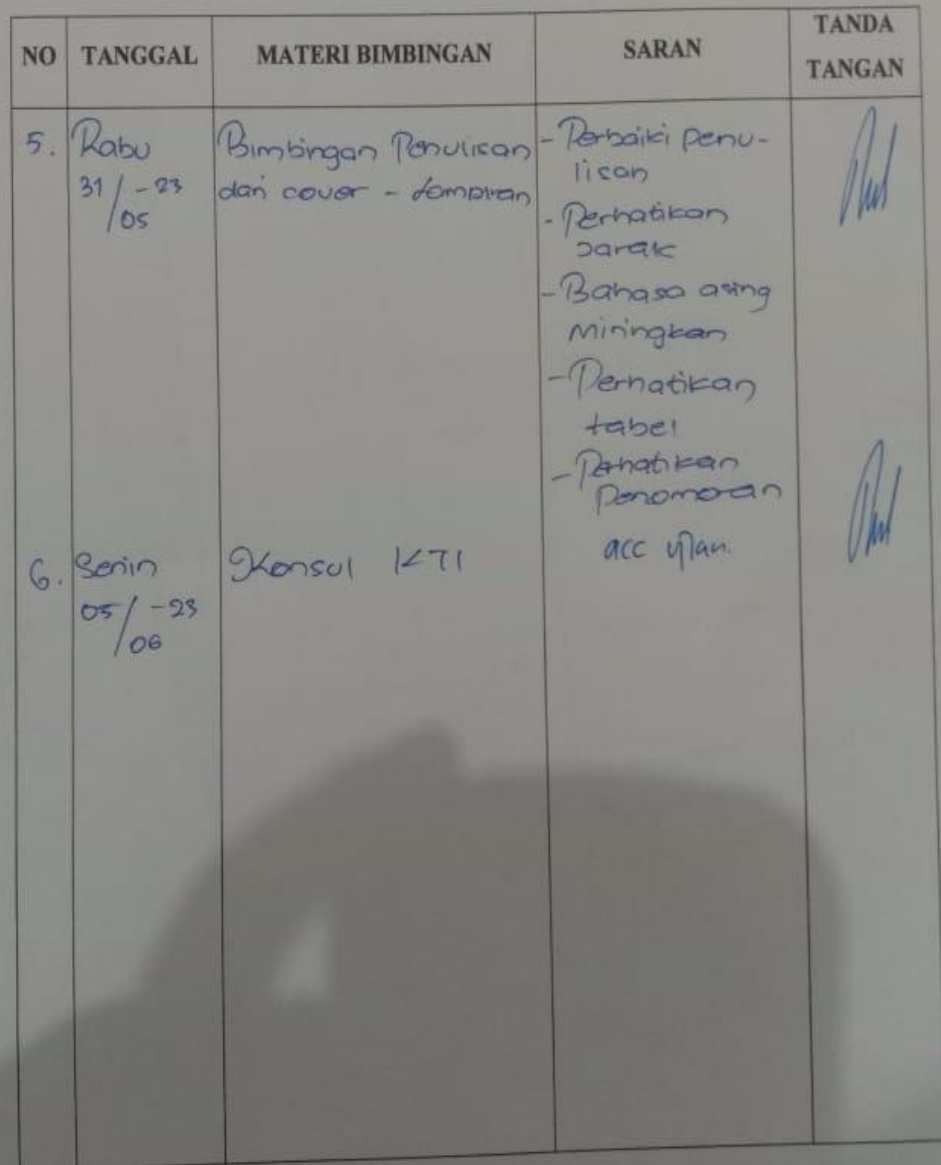 NO TANGGAL MATERI BIMBINGAN SARAN TANDA TANGAN
5. Rabu
31/05-23
Bimbingan Penulisan
dari cover - lampiran
- Perbaiki penu-
lisan
- Perhatikan
Jarak
- Bahasa asing
miringkan
- Perhatikan
tabel
- Perhatikan
Penomoran
6. Senin
05/06-23
Konsul KTI
acc ujian.